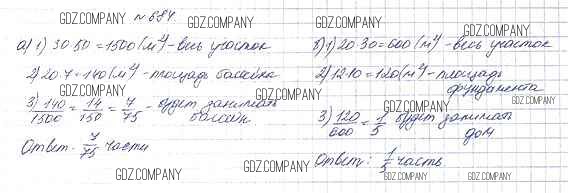 № 684
а) 1) 30·50 = 1500 (м²) - весь участок
2) 20·7 = 140 (м²) - площадь бассейна
3) 140/1500 = 14/150 = 7/75 - будет занимать
бассейн
Ответ: 7/75 части
б) 1) 20·30 = 600 (м²) - весь участок
2) 12·10 = 120 (м²) - площадь
фундамента
3) 120/600 = 1/5 будет занимать
дом
Ответ: 1/5 часть.
GDZ.COMPANY
GDZ.COMPANY
GDZ.COMPANY
GDZ.COMPANY
GDZ.COMPANY
GDZ.COMPANY
GDZ.COMPANY
GDZ.COMPANY
GDZ.COMPANY
GDZ.COMPANY
GDZ.COMPANY
GDZ.COMPANY